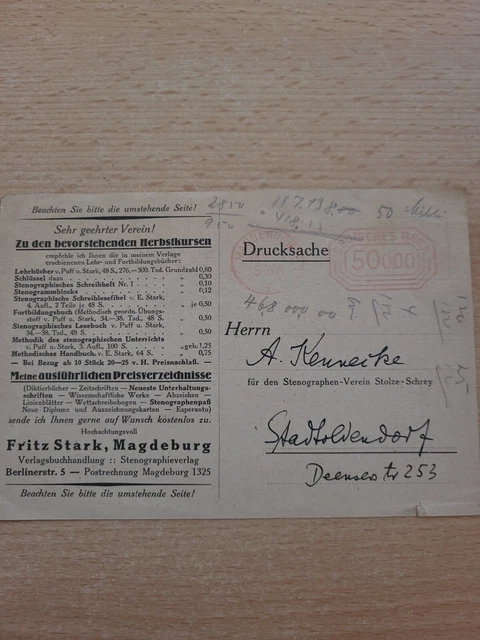 Beachten Sie bitte die umstehende Seite!
Sehr geehrter Verein!
Zu den bevorstehenden Herbstkursen
empfehle ich Ihnen die in meinem Verlage
erschienenen Lehr- und Fortbildungsbücher:
Lehrbücher v. Puff u. Stark, 48 S., 276.—300. Tsd. Grundzahl 0,80
Schlüssel dazu . . . . . . . . . . „ 0,30
Stenographisches Schreibheft Nr. 1 . . . . „ 0,10
Stenogrammblocks . . . . . . . . . „ 0,12
Stenographische Schreiblesefibel v. E. Stark,
4. Aufl., 2 Teile je 48 S. . . . . . . . „ je 0,50
Fortbildungsbuch (Methodisch geordn. Übungs-
stoff v. Puff u. Stark, 34.—38. Tsd., 48 S. „ 0,50
Stenographisches Lesebuch v. Puff u. Stark,
34.—38. Tsd., 48 S. . . . . . . . „ 0,50
Methodik des stenographischen Unterrichts
v. Puff u. Stark, 3. Aufl., 100 S. . . . „ geb. 1,25
Methodisches Handbuch, v. E. Stark, 64 S. . „ 0,75
— Bei Bezug ab 10 Stück 20—25 v. H. Preisnachlaß. —
Meine ausführlichen Preisverzeichnisse
(Diktierbücher — Zeitschriften — Neueste Unterhaltungs-
schriften — Wissenschaftliche Werke — Abzeichen —
Linienblätter — Wettschreibebogen — Stenographenpaß
Neue Diplome und Auszeichnungskarten — Esperanto)
sende ich Ihnen gerne auf Wunsch kostenlos zu.
Hochachtungsvoll
Fritz Stark, Magdeburg
Verlagsbuchhandlung :: Stenographieverlag
Berlinerstr. 5 — Postrechnung Magdeburg 1325
Beachten Sie bitte die umstehende Seite!
2850
950
50
Drucksache
50000
468 000 00
Herrn
A. Kennecke
für den Stenographen-Verein Stolze-Schrey
Stadtoldendorf
Deensenstr 253